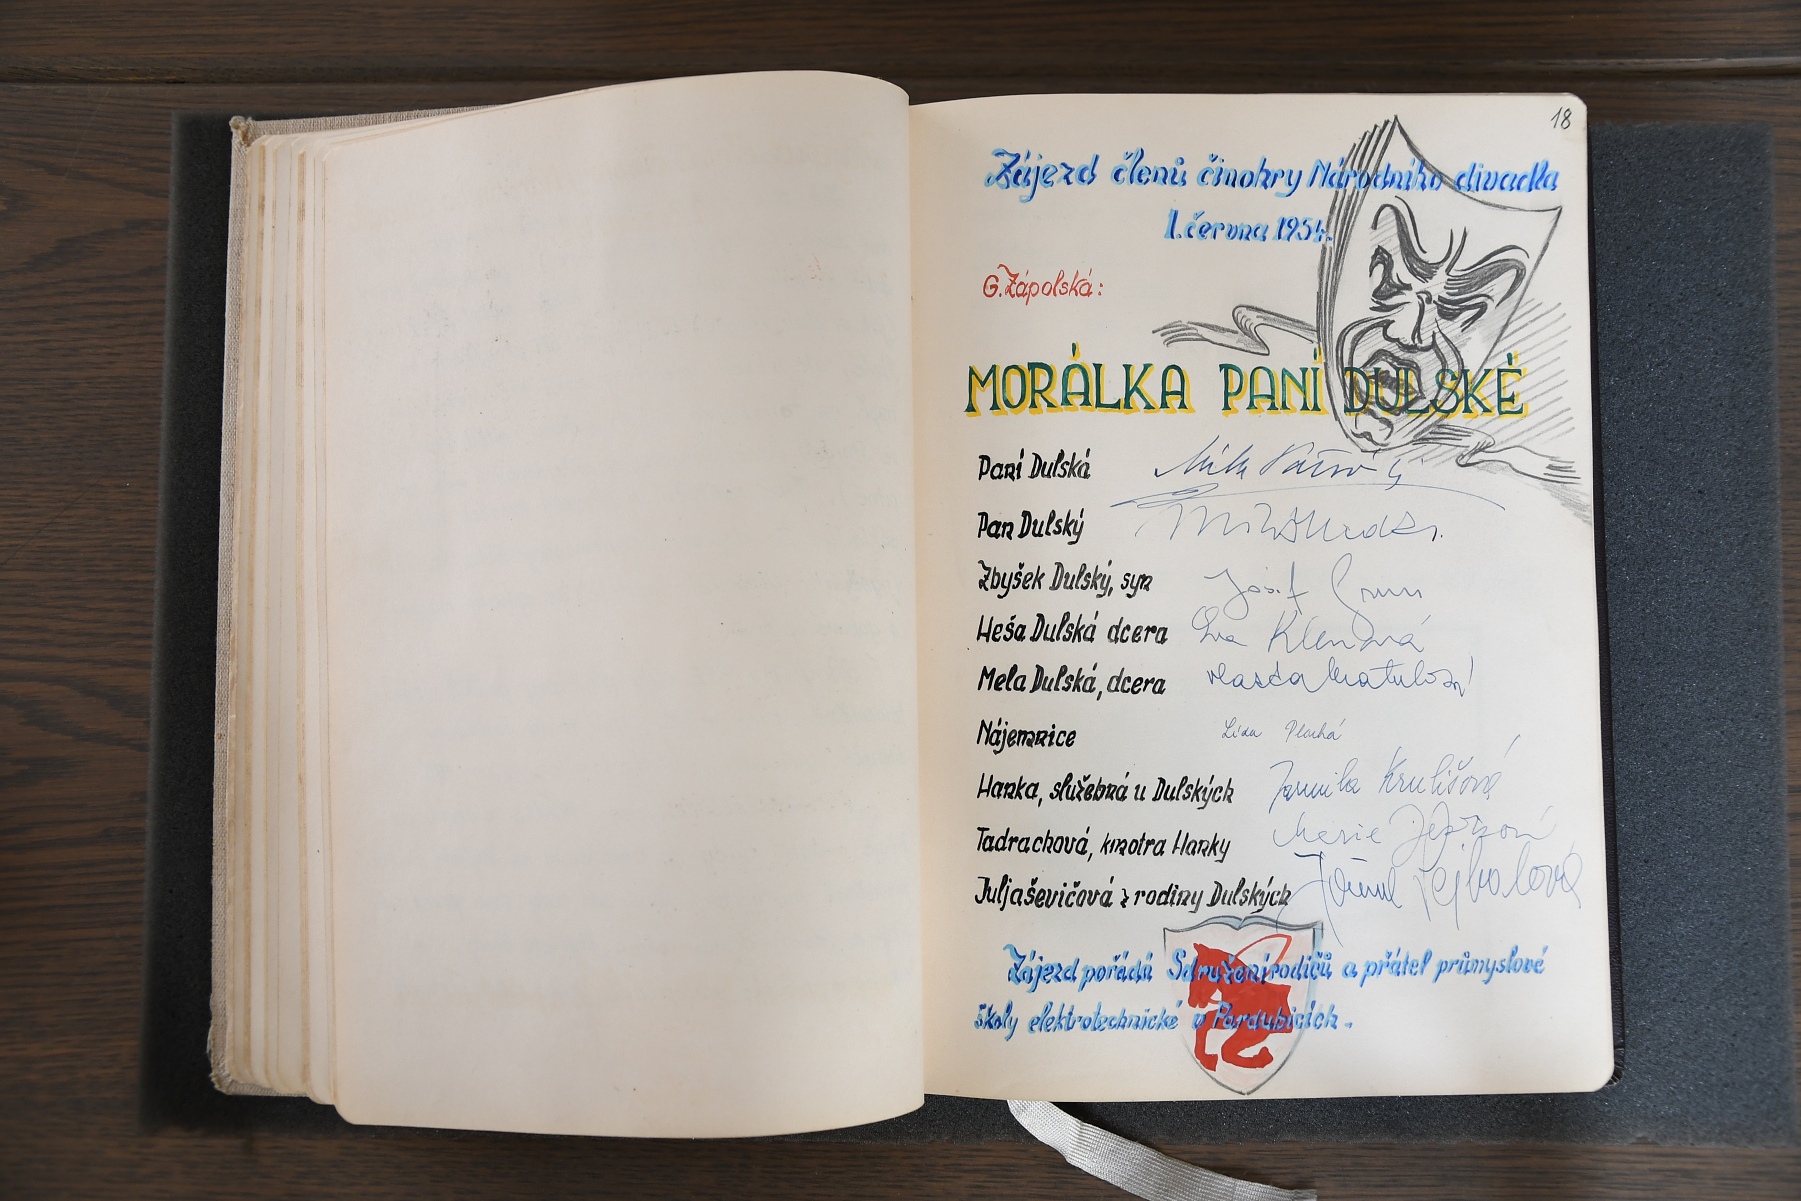 18
Zájezd členů činohry Národního divadla
1. června 1954.
G. Zápolská:
MORÁLKA PANÍ DULSKÉ
Paní Dulská Míla
Pan Dulský
Zbyšek Dulský, syn Josef
Heša Dulská dcera Eva Klenová
Mela Dulská, dcera Vlasta
Nájemnice Lída Plachá
Hanka, služebná u Dulských Jarmila Krulišová
Tadrachová, kmotra Hanky Marie
Juljaševičová z rodiny Dulských Lejbalová
Zájezd pořádá Sdružení rodičů a přátel průmyslové
školy elektrotechnické v Pardubicích.